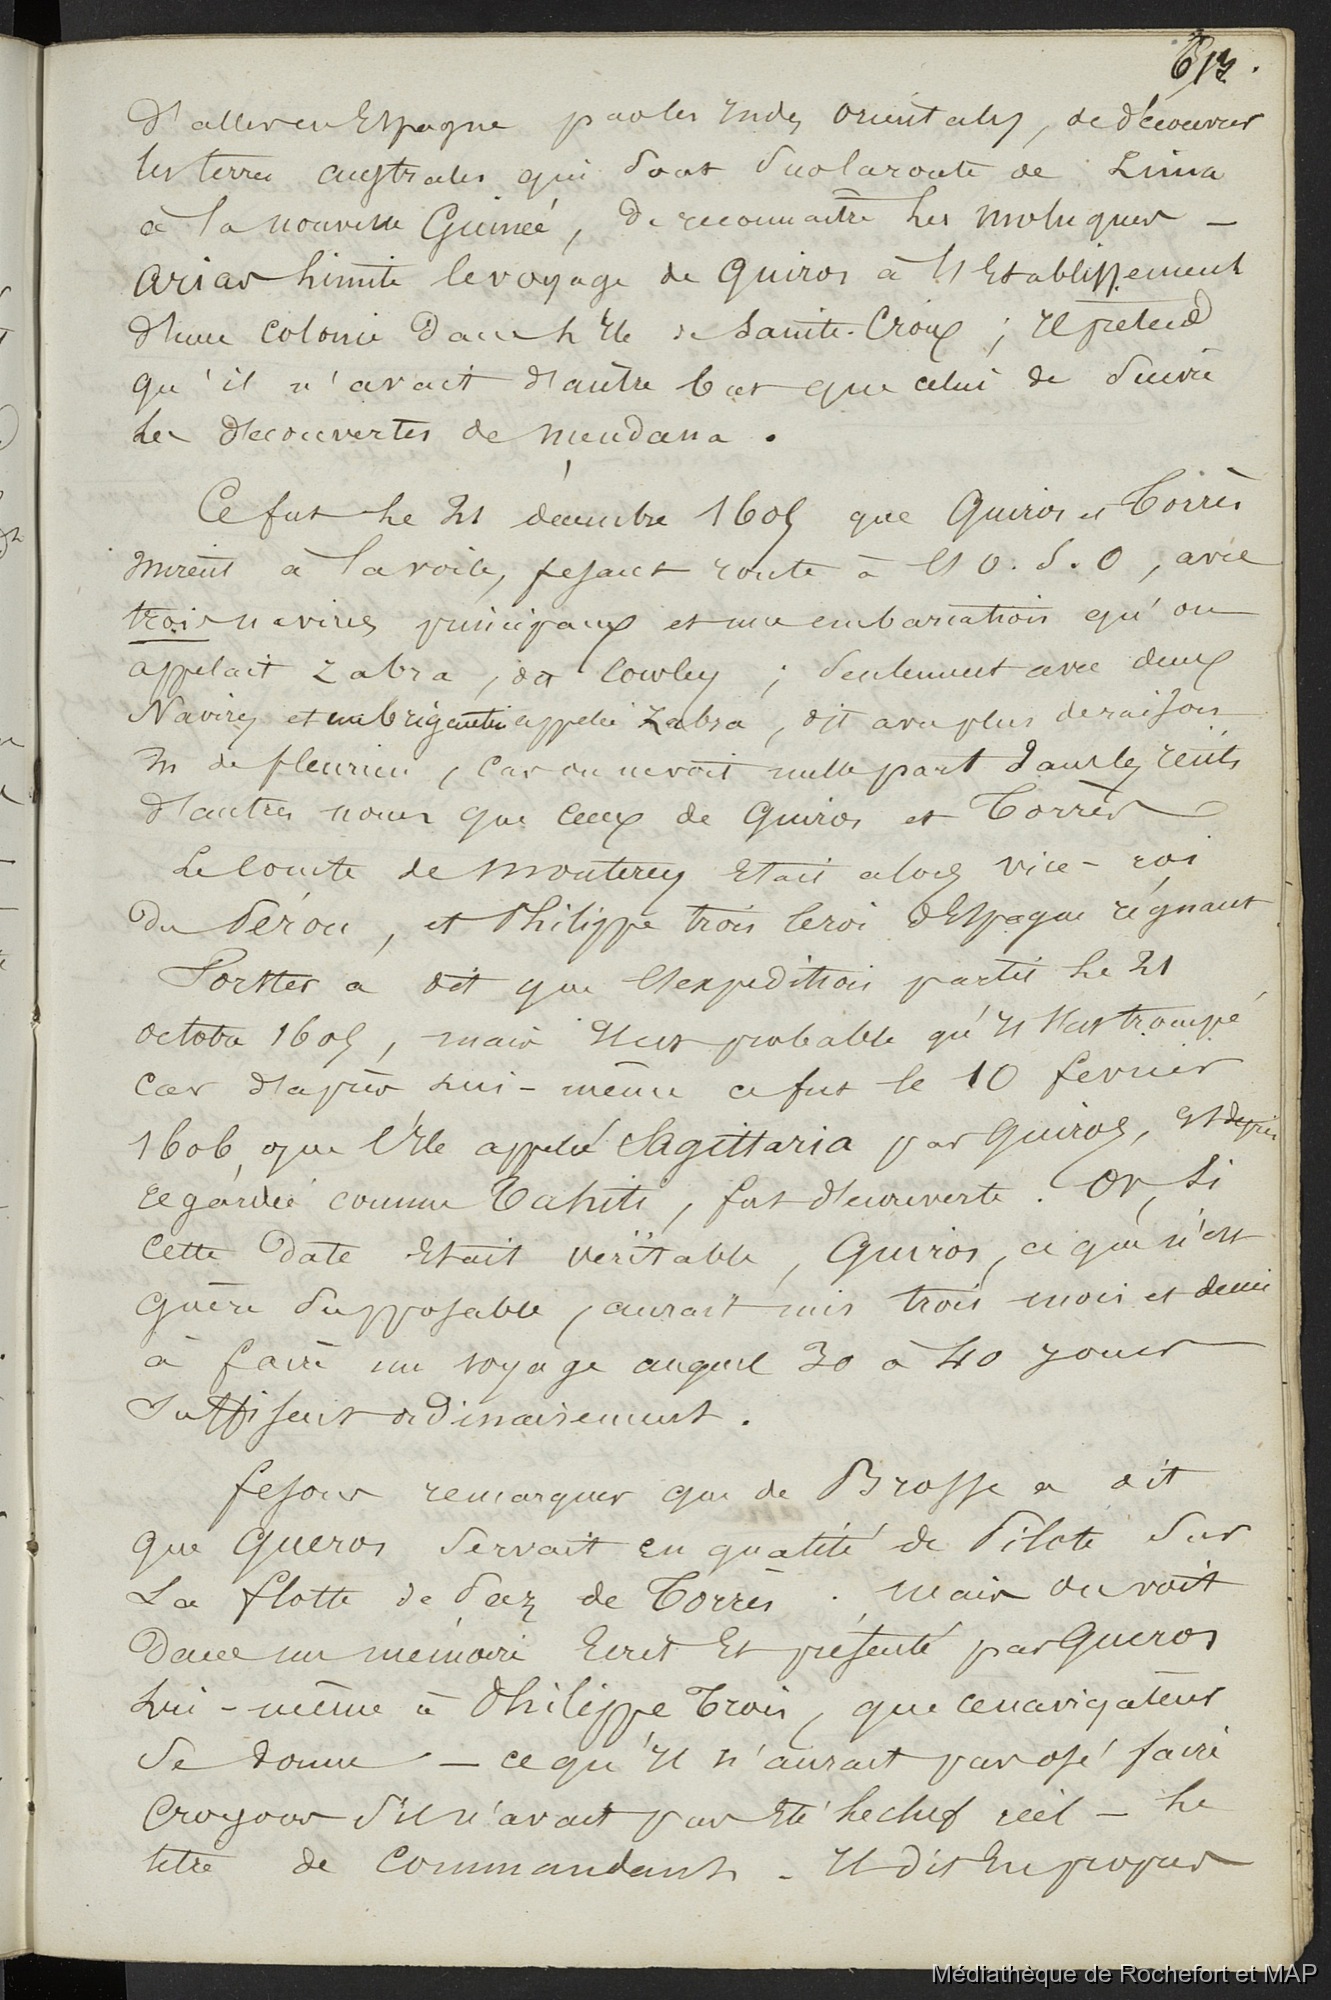 d'aller en Espagne par les Indes Orientales, de découvrir
les terres australes qui sont sur la route de Lima
à la nouvelle Guinée, de reconnaître les moluques –
Arias limite le voyage de Quiros à l'Etablissement
d'une colonie dans l'Ile de Sainte-Croix ; il prétend
qu'il n'avait d'autre but que celui de suivre
les découvertes de mendana.
Ce fut le 21 décembre 1605 que Quiros et Torrès
mirent à la voile, fesant route à l'O.S.O, avec
trois navires principaux et une embarcation qu'on
appelait Zabra, dit Cowley ; seulement avec deux
Navires et un brigantin appelé Zabra, dit avec plus de raison
M de fleurieu, car on ne voit nulle part dans les récits
d'autres noms que ceux de Quiros et Torrès
Le Comte de Monterey Etait alors vice-roi
du Pérou, et Philippe trois le roi d'Espagne régnant
Forster a dit que l'expédition partit le 21
octobre 1605, mais il est probable qu'il s'est trompé
car d'après lui-même ce fut le 10 fevrier
1606, que l'Ile appelée Sagittaria par Quiros, et depuis
regardée comme Tahiti, fut découverte. Or, si
cette date Etait véritable, Quiros, ce qui n'est
guère supposable, aurait mis trois mois et demi
à faire un voyage auquel 30 à 40 jours
suffisent ordinairement.
fesons remarquer que de Brosse a dit
que Queros servait en qualité de Pilote sur
La flotte de Paz de Torrès. mais on voit
dans un mémoire Ecrit Et présenté par Queros
lui-même à Philippe Trois, que ce navigateur
se donne – ce qu'il n'aurait pas osé faire
croyons s'il n'avait pas Eté le chef réel – le
titre de commandant. Il dit En propres
Médiathèque de Rochefort et MAP